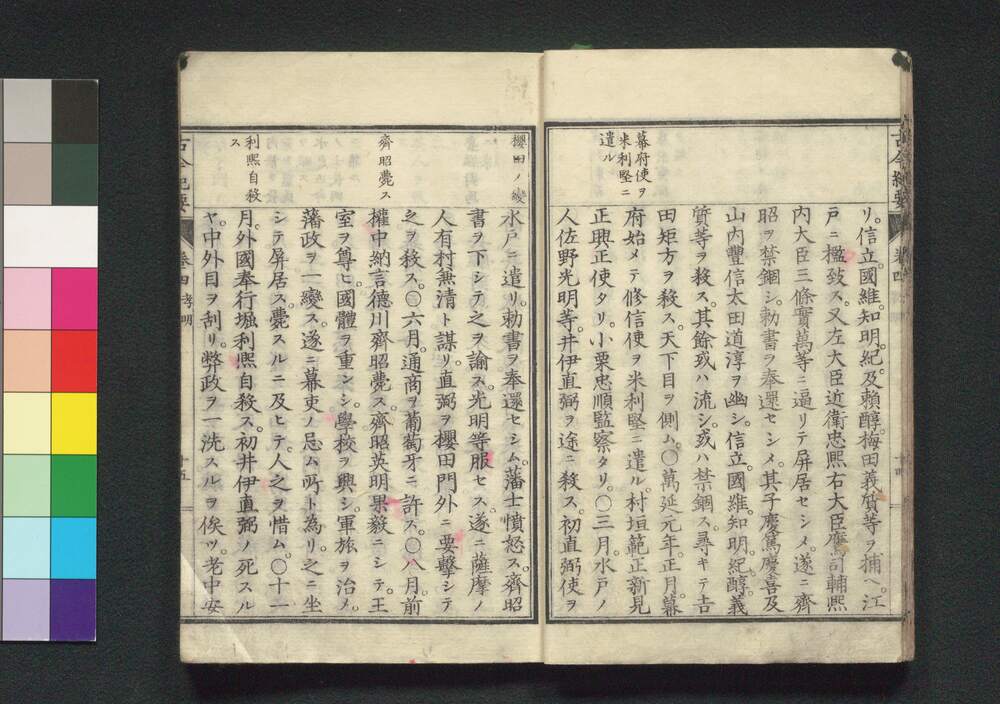 古今紀要
卷四
十四
幕府使ヲ
米利堅ニ
遣ル
リ。信立。國維。知明。紀。及賴醇。梅田義質等ヲ捕ヘ。江
戸ニ檻致ス。又左大臣近衞忠熙右大臣鷹司輔熙
内大臣三條實萬等ニ逼リテ屏居セシメ。遂ニ齊
昭ヲ禁錮シ。勅書ヲ奉還セシメ。其子慶篤慶喜及
山内豐信太田道淳ヲ幽シ。信立。國維。知明。紀。醇。義
質等ヲ殺ス。其餘或ハ流シ。或ハ禁錮ス。尋キテ吉
田矩方ヲ殺ス。天下目ヲ側ム。〇萬延元年。正月。幕
府始メテ修信使ヲ米利堅ニ遣ル。村垣範正新見
正興正使タリ。小栗忠順監察タリ。〇三月。水戸ノ
人佐野光明等。井伊直弼ヲ途ニ殺ス。初直弼使ヲ
櫻田ノ變
齊昭薨ス
利熙自殺
ス
水戸ニ遣リ。勅書ヲ奉還セシム。藩士憤怒ス。齊昭
書ヲ下シテ之ヲ諭ス。光明等服セス。遂ニ薩摩ノ
人有村兼清ト謀リ。直弼ヲ櫻田門外ニ要擊シテ
之ヲ殺ス。〇六月。通商ヲ葡萄牙ニ許ス。〇八月。前
權中納言德川齊昭薨ス。齊昭英明果毅ニシテ。王
室ヲ尊ヒ。國體ヲ重ンシ。學校ヲ興シ。軍旅ヲ治メ。
藩政ヲ一變ス。遂ニ幕吏ノ忌ム所ト為リ。之ニ坐
シテ屏居ス。薨スルニ及ヒテ。人之ヲ惜ム。〇十一
月。外國奉行堀利熙自殺ス。初井伊直弼ノ死スル
ヤ。中外目ヲ刮リ。弊政ヲ一洗スルヲ俟ツ。老中安
古今紀要
卷四 孝明
十五